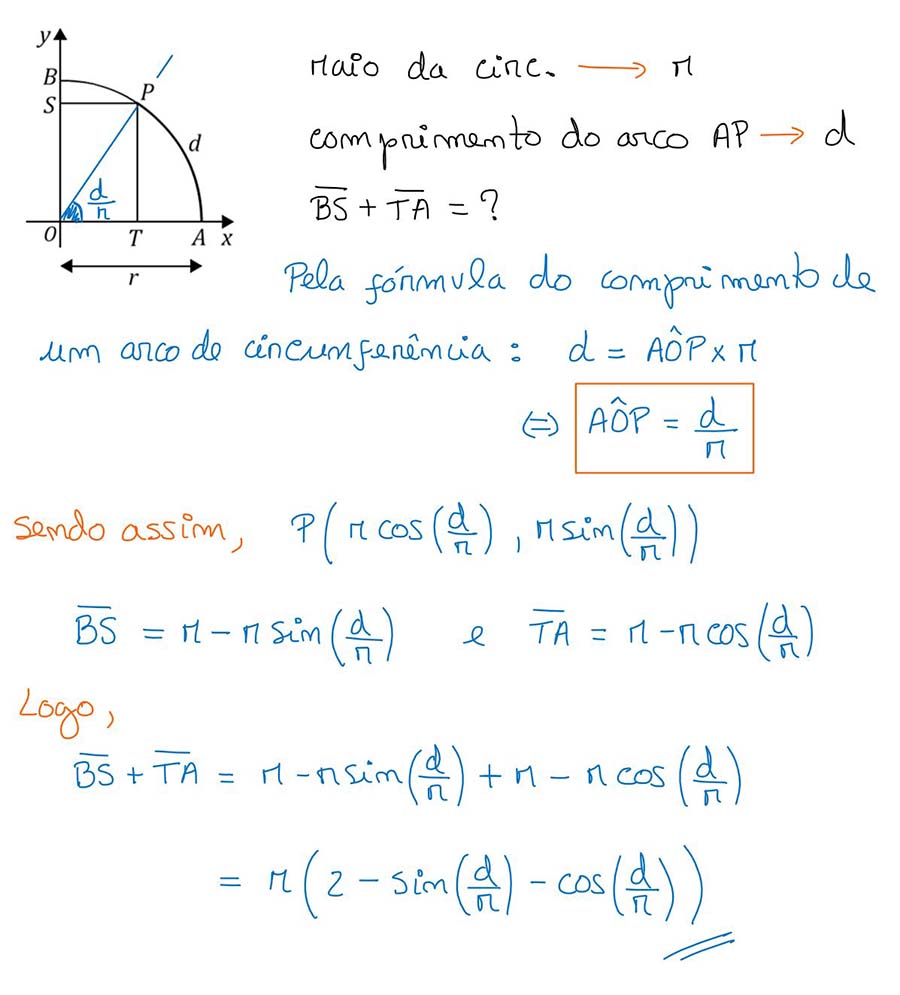 y
B
S
P
d
d/r
O T A x
r
raio da circ. → r
comprimento do arco AP → d
B̅S̅ + T̅A̅ = ?
Pela fórmula do comprimento de
um arco de circunferência : d = AÔP × r
⇔ AÔP = d/r
Sendo assim, P(r cos(d/r), r sin(d/r))
B̅S̅ = r - r sin(d/r) e T̅A̅ = r - r cos(d/r)
Logo,
B̅S̅ + T̅A̅ = r - r sin(d/r) + r - r cos(d/r)
= r(2 - sin(d/r) - cos(d/r))